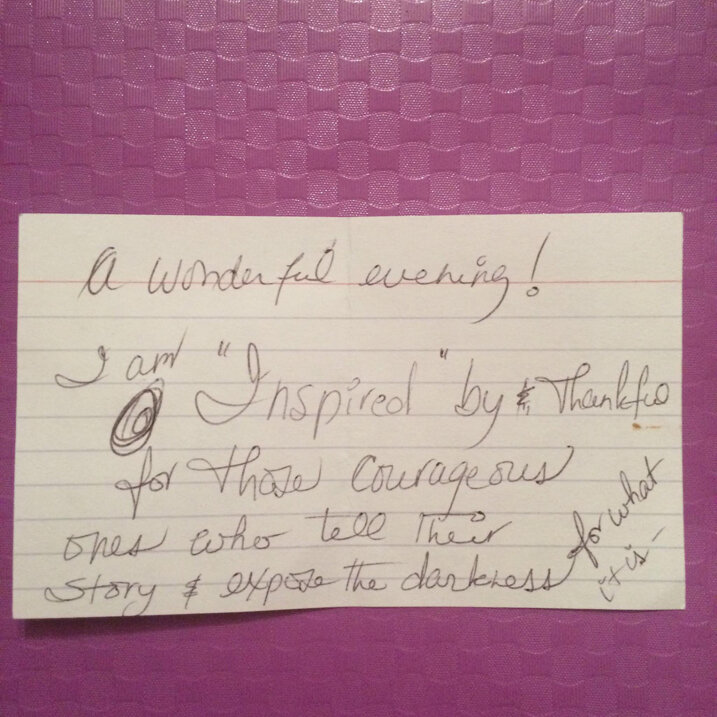 A wonderful evening!
I am "Inspired" by & Thankful
for those courageous
ones who tell their
story & expose the darkness for what
it is -